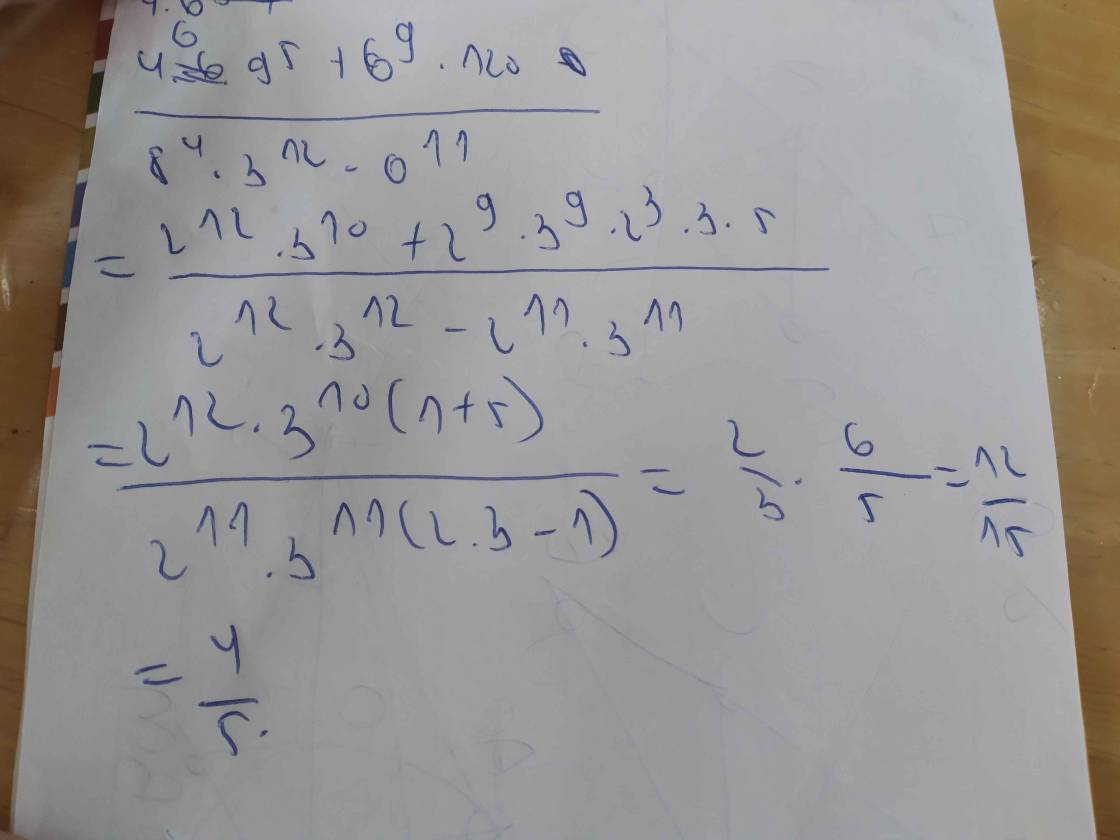 4⁶ 9⁵ + 6⁹ · 120
8⁴ · 3¹² - 6¹¹
= 2¹² · 3¹⁰ + 2⁹ · 3⁹ · 2³ · 3 · 5
2¹² · 3¹² - 2¹¹ · 3¹¹
= 2¹² · 3¹⁰ (1+5)
2¹¹ · 3¹¹ (2 · 3 - 1)
= 2/3 · 6/5 = 12/15
= 4/5 .